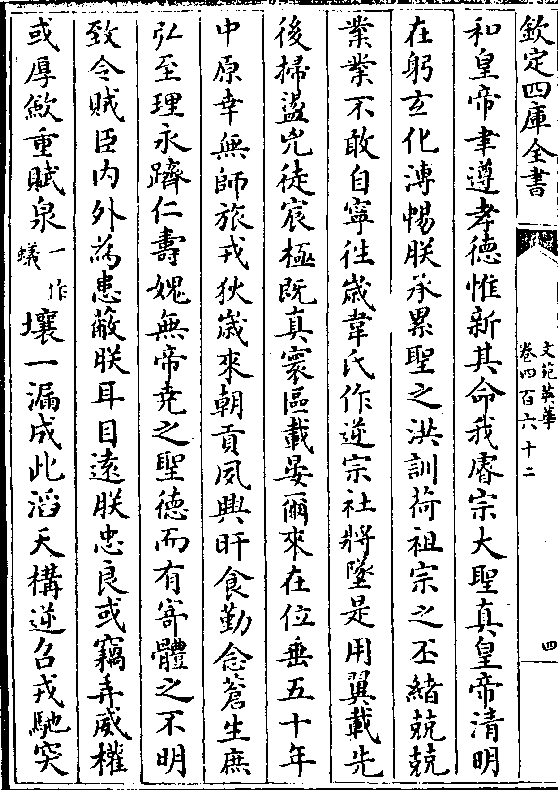 欽定四庫全書
文苑英華
卷四百六十二
四
和皇帝聿遵孝德惟新其命我睿宗大聖真皇帝清明
在躬玄化溥暢朕承累聖之洪訓荷祖宗之丕緒兢兢
業業不敢自寧徃歲韋氏作逆宗社將墜是用翼載先
後掃盪兇徒宸極既真寰區載晏爾來在位垂五十年
中原幸無師旅戎狄歲來朝貢夙興旰食勤念蒼生庶
弘至理永躋仁壽媿無帝堯之聖德而有寄體之不明
致令賊臣内外為患蔽朕耳目遠朕忠良或竊弄威權
或厚斂重賦泉一作蟻壤一漏成此滔天構逆召戎馳突